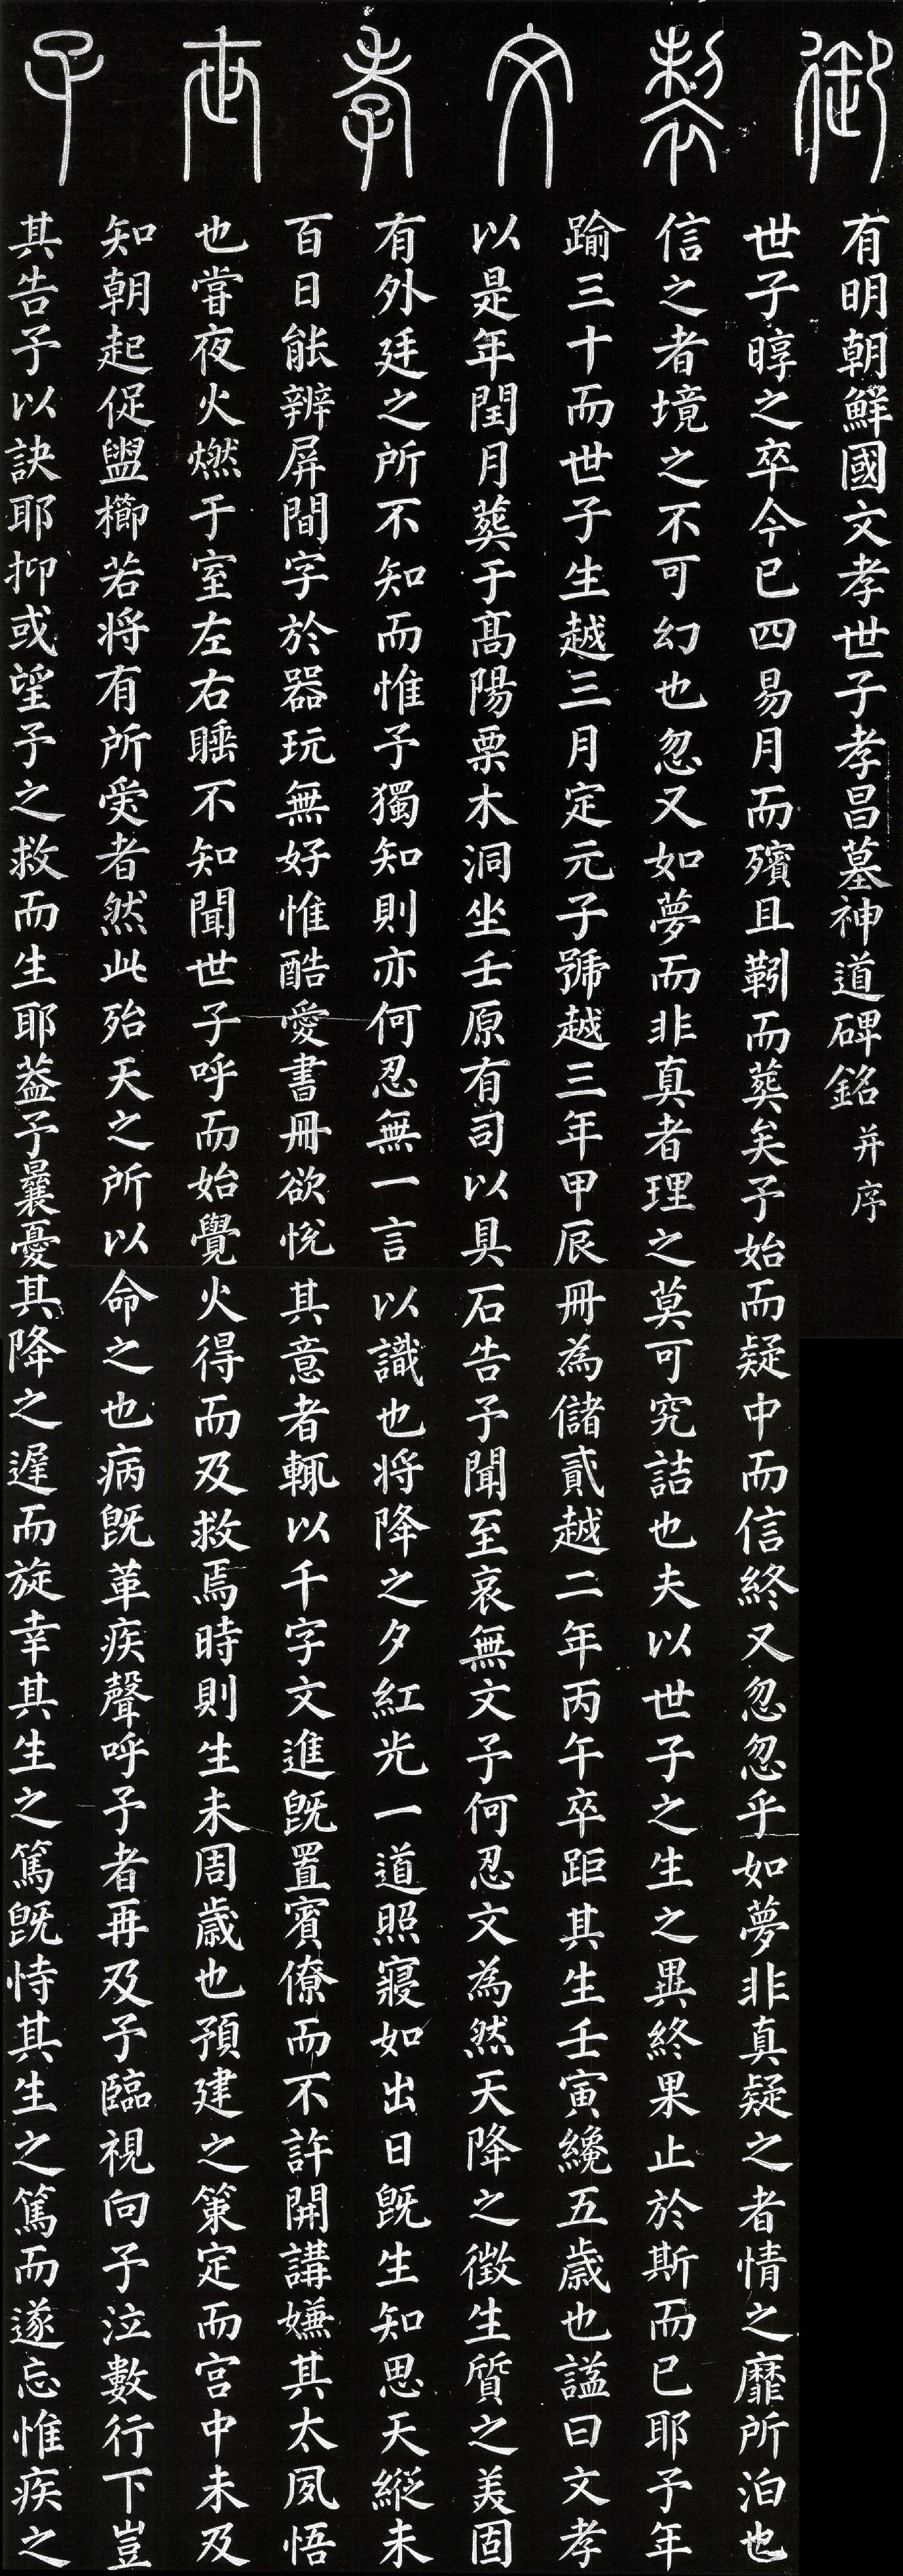 御製文孝世子
有明朝鮮國文孝世子孝昌墓神道碑銘 并序
世子㬀之卒今已四易月而殯且靷而葬矣予始而疑中而信終又忽忽乎如夢非真疑之者情之靡所泊也
信之者境之不可幻也忽又如夢而非真者理之莫可究詰也夫以世子之生之異終果止於斯而已耶予年
踰三十而世子生越三月定元子號越三年甲辰冊為儲貳越二年丙午卒距其生壬寅纔五歲也謚曰文孝
以是年閏月葬于高陽栗木洞坐壬原有司以具石告予聞至哀無文予何忍文為然天降之徵生質之美固
有外廷之所不知而惟予獨知則亦何忍無一言以識也將降之夕紅光一道照寢如出日旣生知思天縱未
百日能辨屏間字於器玩無好惟酷愛書冊欲悅其意者輒以千字文進旣置賓僚而不許開講嫌其太夙悟
也嘗夜火燃于室左右睡不知聞世子呼而始覺火得而及救焉時則生未周歲也預建之策定而宮中未及
知朝起促盥櫛若將有所受者然此殆天之所以命之也病旣革疾聲呼予者再及予臨視向予泣數行下豈
其告予以訣耶抑或望予之救而生耶蓋予曩憂其降之遲而旋幸其生之篤旣恃其生之篤而遂忘惟疾之